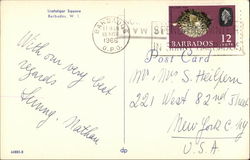 Trafalgar Square
Barbados, W. I.
With our very best
regards
Sunny, Nathan
1966
G.P.O.
BARBADOS
12
CENTS
Post Card
Mr. & Mrs S. Heilpern
221 West 82nd Street
New York City
U S A